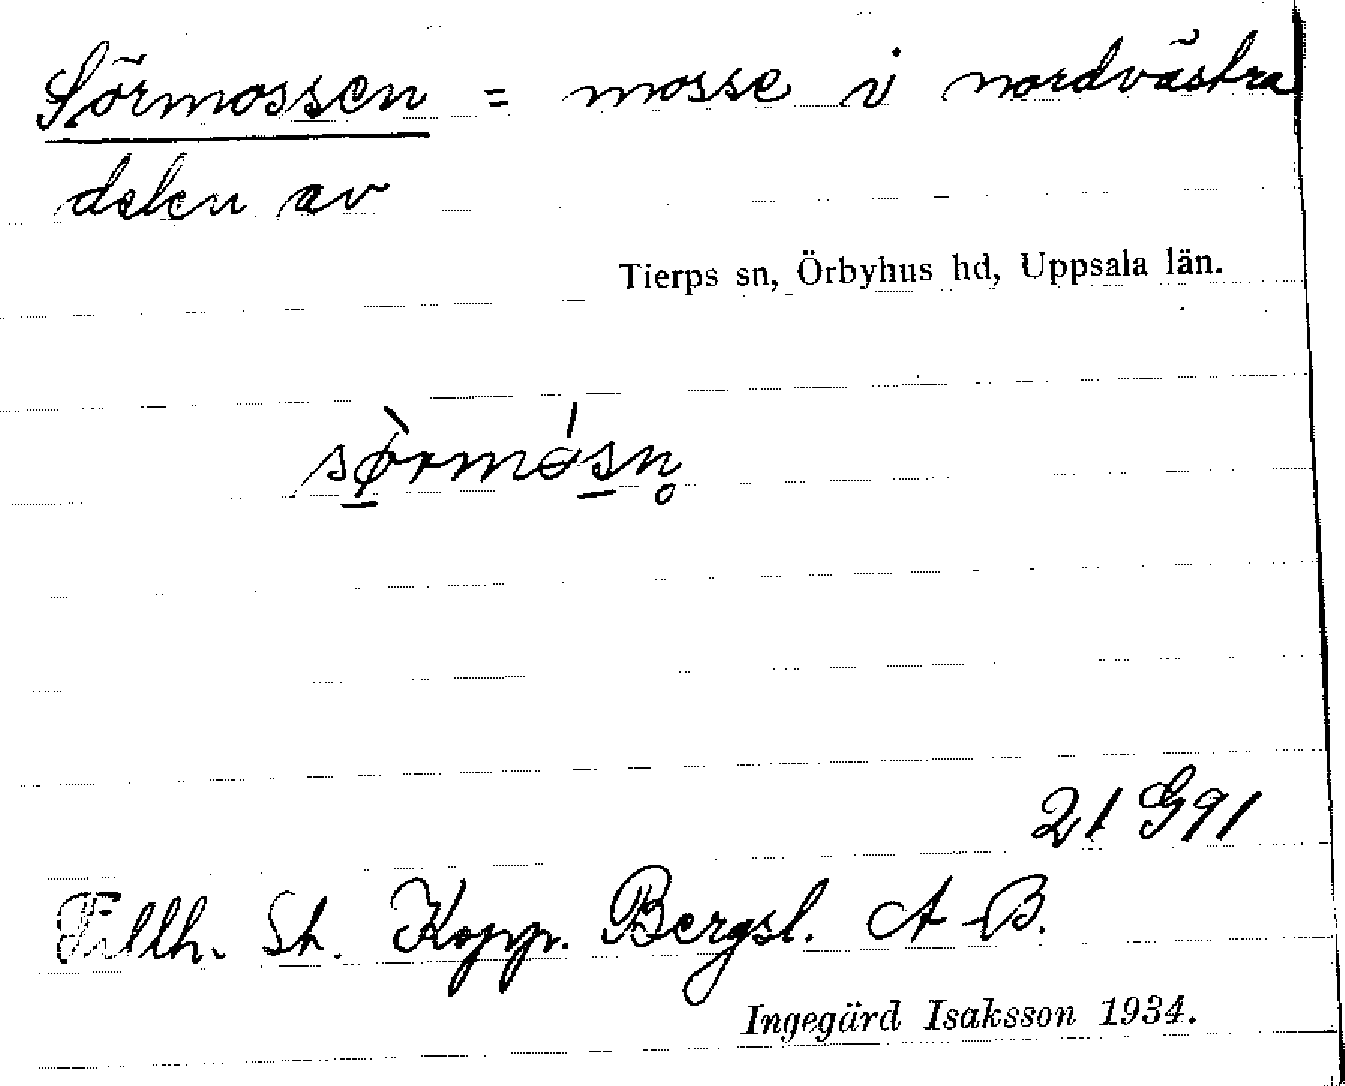 Sörmossen = mosse i nordvästra
delen av
Tierps sn, Örbyhus hd, Uppsala län.
sø̀rmósn̥
21 G91
Tillh. St. Kopp. Bergsl. A-B.
Ingegärd Isaksson 1934.